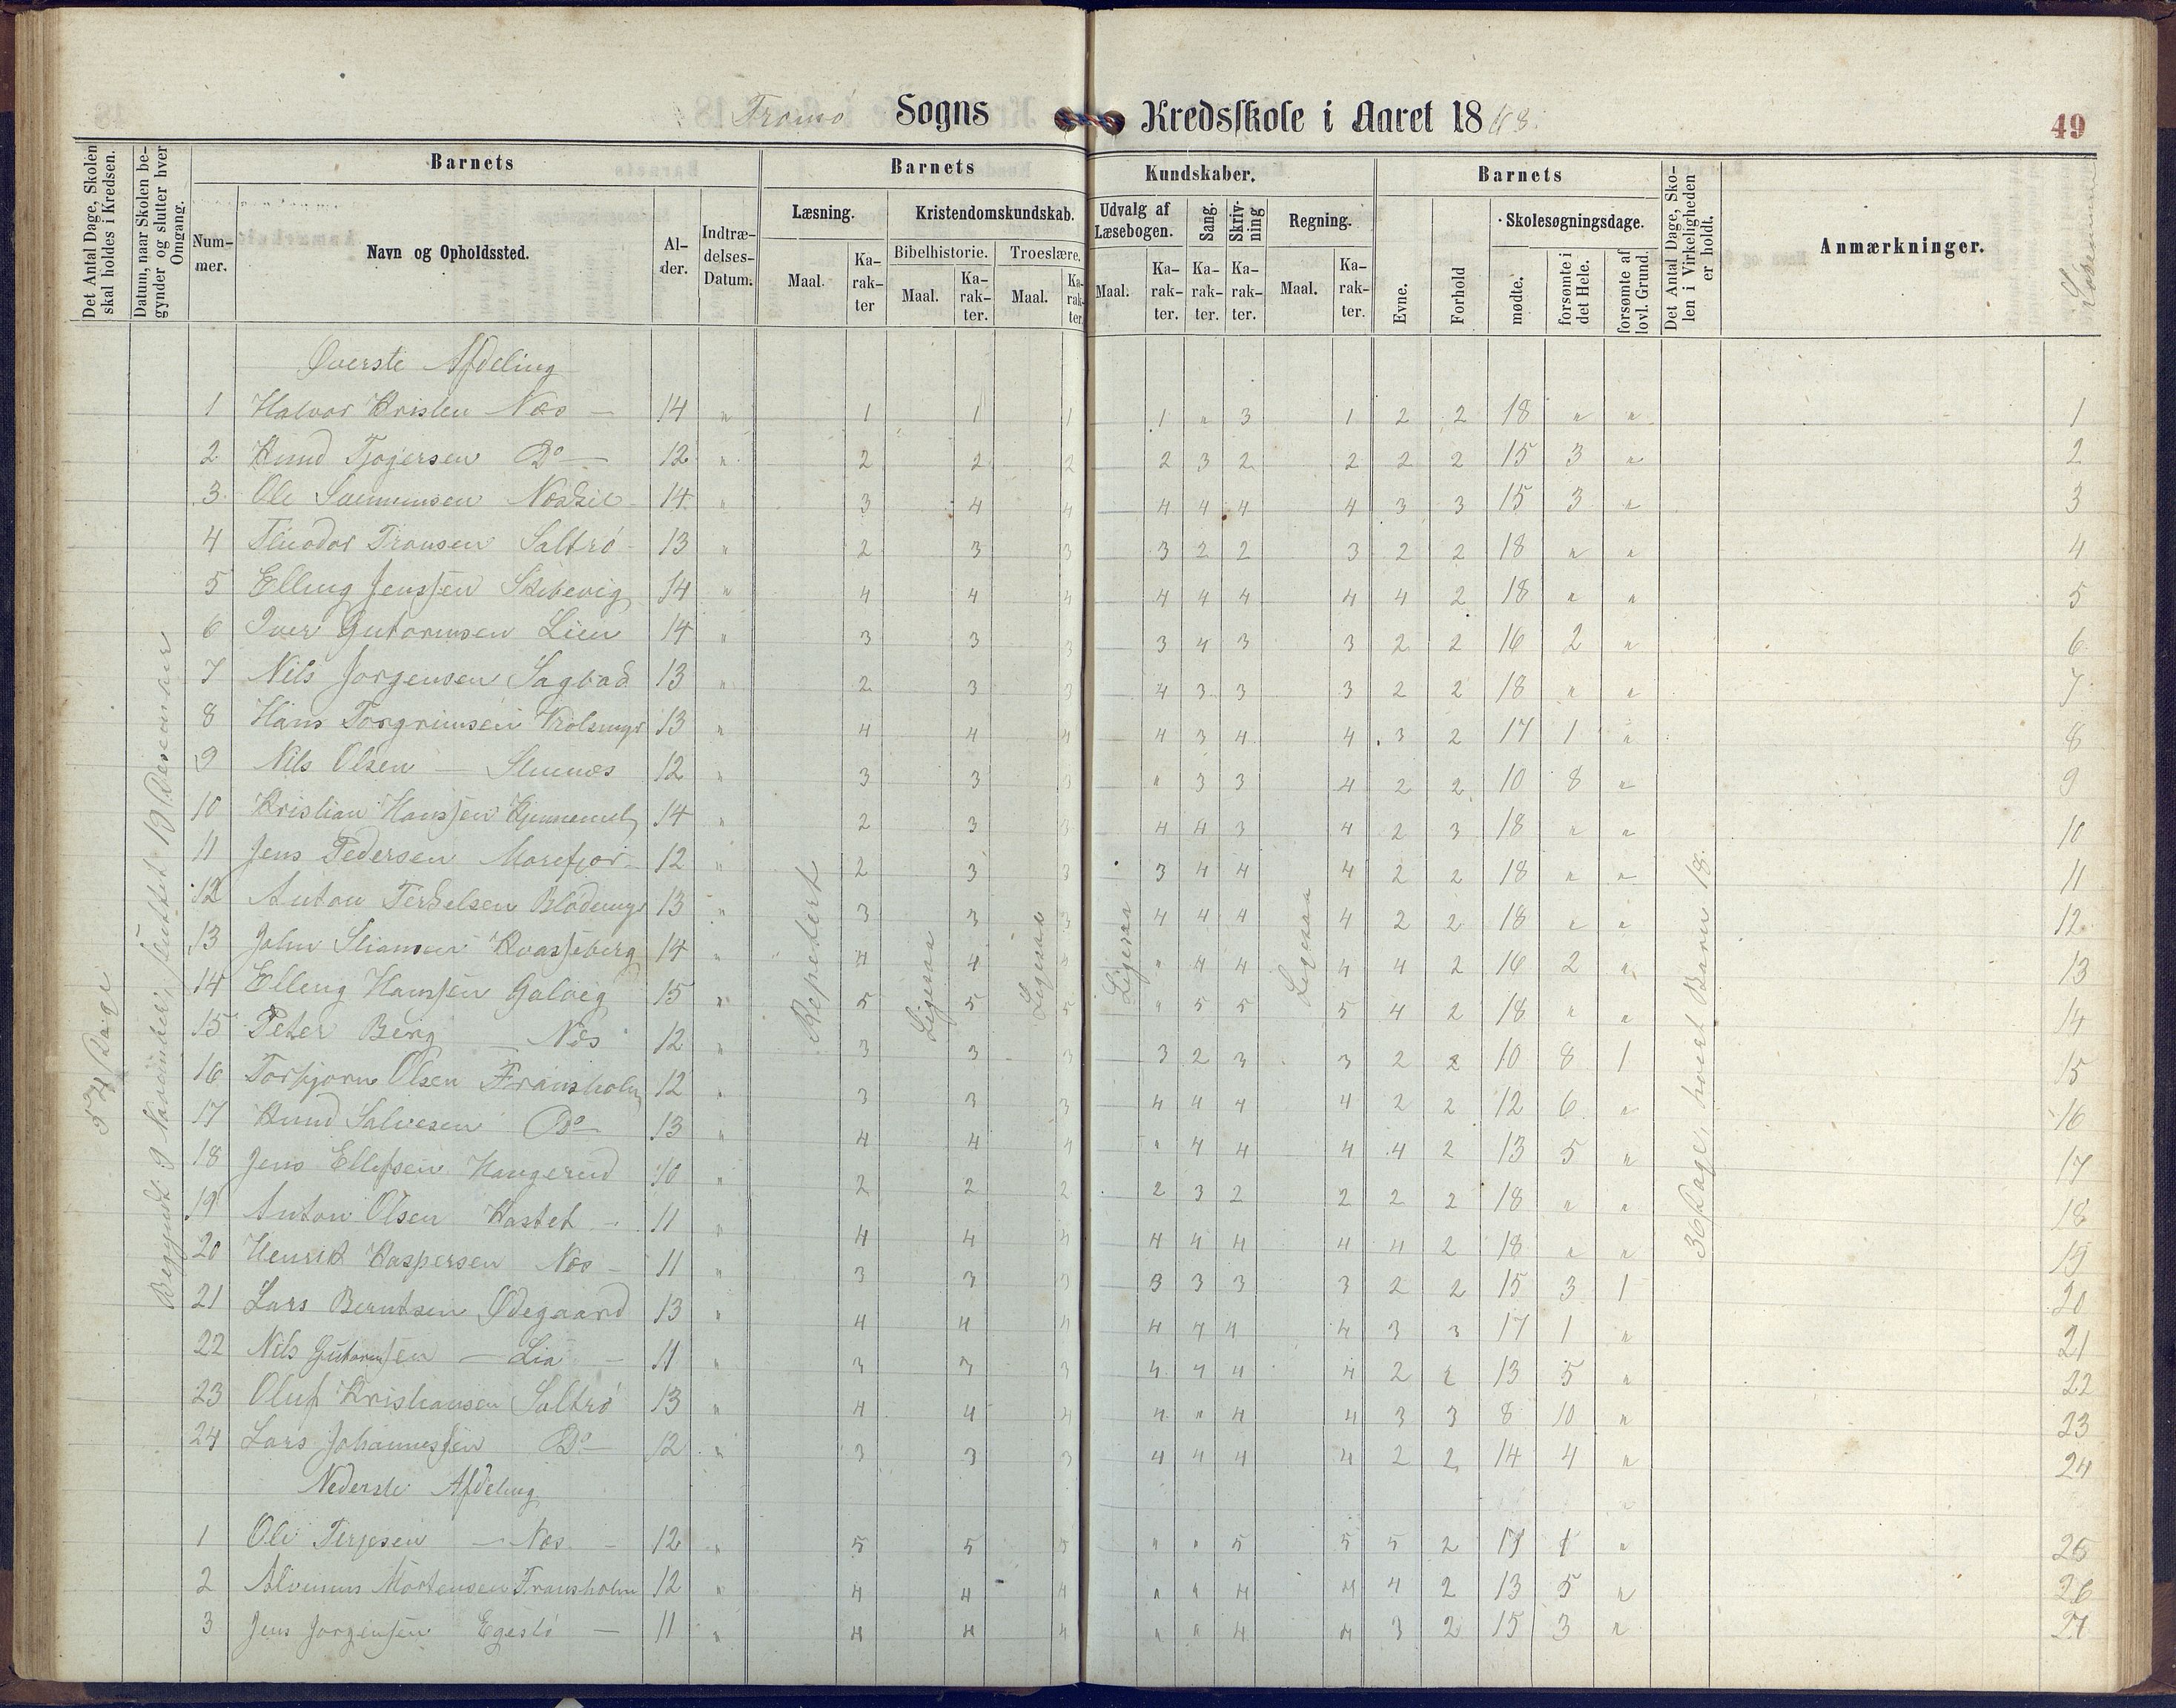 Tromø Sogns Kredsskole i Aaret 1868. 49
Det Antal Dage, Skolen skal holdes i Kredsen.
Datum, naar Skolen begynder og slutter hver Omgang.
Barnets
Num-mer.
Navn og Opholdssted.
Al-der.
Indtræ-delses-Datum.
Barnets Kundskaber.
Læsning. Maal. Ka-rak-ter
Kristendomskundskab.
Bibelhistorie. Maal. Ka-rak-ter.
Troeslære. Maal. Ka-rak-ter.
Udvalg af Læsebogen. Maal. Ka-rak-ter.
Sang. Ka-rak-ter.
Skriv-ning Ka-rak-ter.
Regning. Maal. Ka-rak-ter.
Barnets
Evne.
Forhold
Skolesøgningsdage.
mødte.
forsømte i det Hele.
forsømte af lovl. Grund.
Det Antal Dage, Sko-len i Virkeligheden er holdt.
Anmærkninger.
54 Dage
Begyndt 9 November, sluttet 19 Desember
Repetert
Ligesaa
Ligesaa
Ligesaa
Ligesaa
36 Dage, hvert Barn 18.
Øverste Afdeling
1 Halvor Kristen Næs — 14 " 1 1 1 1 " 3 1 2 2 18 " " 1
2 Knud Tjøgersen Do — 12 " 2 2 2 2 3 2 2 2 2 15 3 " 2
3 Ole 14 " 3 4 4 4 4 4 4 3 3 15 3 " 3
4 Theodor Transen Saltrø 13 " 2 3 3 3 2 2 3 2 2 18 " " 4
5 Elling Jenssen Skibevig 14 " 4 4 4 4 4 4 4 4 2 18 " " 5
6 Iver Gutormsen Lien 14 " 3 3 3 3 4 3 3 2 2 16 2 " 6
7 Nils Jorgensen 13 " 2 3 3 4 3 3 3 2 2 18 " " 7
8 Hans Torgrimsen 13 " 4 4 4 4 3 4 4 3 2 17 1 " 8
9 Nils Olsen — 12 " 3 3 3 " 3 3 4 2 2 10 8 " 9
10 Kristian Hanssen 14 " 2 3 3 4 4 3 4 2 3 18 " " 10
11 Jens Pedersen Morefjær 12 " 2 3 3 3 4 4 4 2 2 18 " " 11
12 Anton Terkelsen Blødemyr 13 " 3 3 3 4 4 4 4 2 2 18 " " 12
13 John Stiansen Kvasseberg 14 " 4 4 4 " 4 4 4 4 2 16 2 " 13
14 Elling Hanssen Galvig 15 " 5 5 5 " 5 5 5 4 2 18 " " 14
15 Peter Berg Næs 12 " 3 3 3 3 2 3 3 2 2 10 8 1 15
16 Torbjørn Olsen Fransholm 12 " 3 3 3 4 4 4 4 2 2 12 6 " 16
17 Knud Salvesen Do — 13 " 4 4 4 " 4 4 4 4 2 13 5 " 17
18 Jens Ellefsen Haugerud 10 " 2 2 2 2 3 2 2 2 2 18 " " 18
19 Anton Olsen Kastet — 11 " 4 4 4 4 4 4 4 4 2 18 " " 19
20 Henrik Kaspersen Næs — 11 " 3 3 3 3 3 3 3 2 2 15 3 1 20
21 Lars Berntsen Ødegaard 13 " 4 4 4 4 4 4 4 3 3 17 1 " 21
22 Nils Gutormsen — Lia — 11 " 3 3 3 4 4 4 4 2 2 13 5 " 22
23 Oluf Kristiansen Saltrø 13 " 4 4 4 4 " 4 4 3 3 8 10 " 23
24 Lars Johannessen Do — 12 " 3 3 3 4 4 4 4 2 2 14 4 " 24
Nederste Afdeling
1 Ole Terjesen — Næs — 12 " 5 5 5 " " 5 5 5 2 17 1 " 25
2 Mortensen Fransholm 12 " 4 4 4 " " 4 4 4 2 13 5 " 26
3 Jens Jorgensen — 11 " 4 4 4 " " 4 4 3 2 15 3 " 27